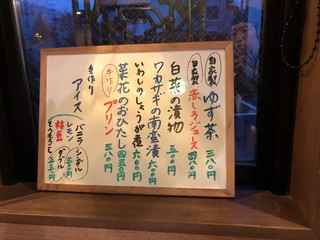 自家製 ゆず茶 三八〇円
自家製 赤しそジュース 四八〇円
白菜の漬物 五〇〇円
ワカサギの南蛮漬 六〇〇円
いわしのしょうが煮 六〇〇円
菜花のおひたし 四五〇円
手作り プリン 三八〇円
手作り
アイス
バニラ
レモン
枝豆
とうもろこし
シングル
ダブル